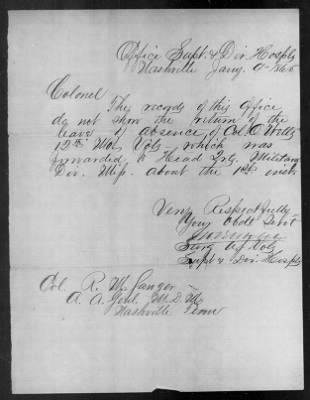 Office Supt. & Div. Hosptls
Nashville Jany. 9 1865
Colonel
The records of this Office
do not show the return of the
leave of absence of Col. O Wells
12th Mo Vols. which was
forwarded to Head Qrs. Military
Div. Miss. about the 1st inst.
Very Respectfully
Your Obdt Servt
Surg U.S. Vols
Supt & Div. Hosptls
Col. R. M. Sawyer
A. A. Genl. M. D. M.
Nashville Tenn